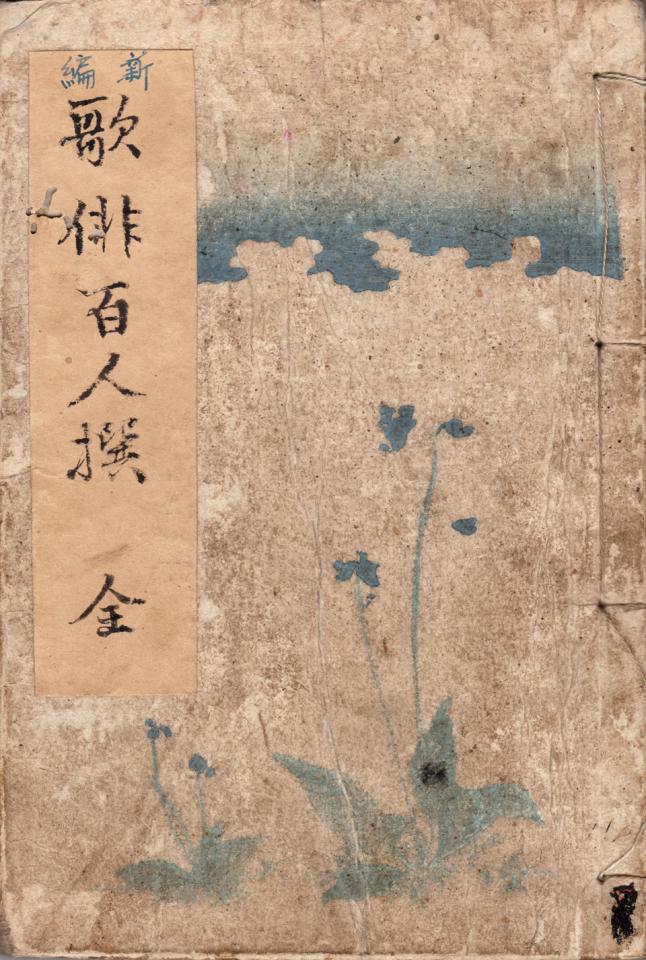 新編
歌俳百人撰 全